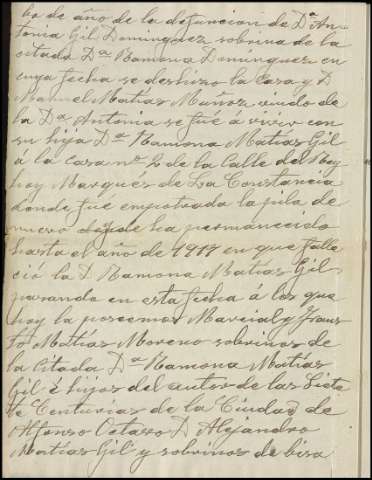 de año de la defuncion de Dª An-
tonia Gil Dominguez sobrina de la
citada Dª Ramona Dominguez en
cuya fecha se deshizo la casa y D
Manuel Matías Muñoz viudo de
la Dª Antonia se fué á vivir con
su hija Dª Ramona Matías Gil
á la casa nº 2 de la Calle del Rey
hoy Marqués de La Constancia
donde fué empotrada la pila de
nuevo donde ha permanecido
hasta el año de 1917 en que falle
ció la D Ramona Matías Gil
pasando en esta fecha á los que
hoy la poseemos Marcial y Frans
fo Matías Moreno sobrinos de
la citada Dª Ramona Matías
Gil é hijos del autor de las Siete
Centurias de la Ciudad de
Alfonso Octavo D Alejandro
Matías Gil y sobrinos de bisa